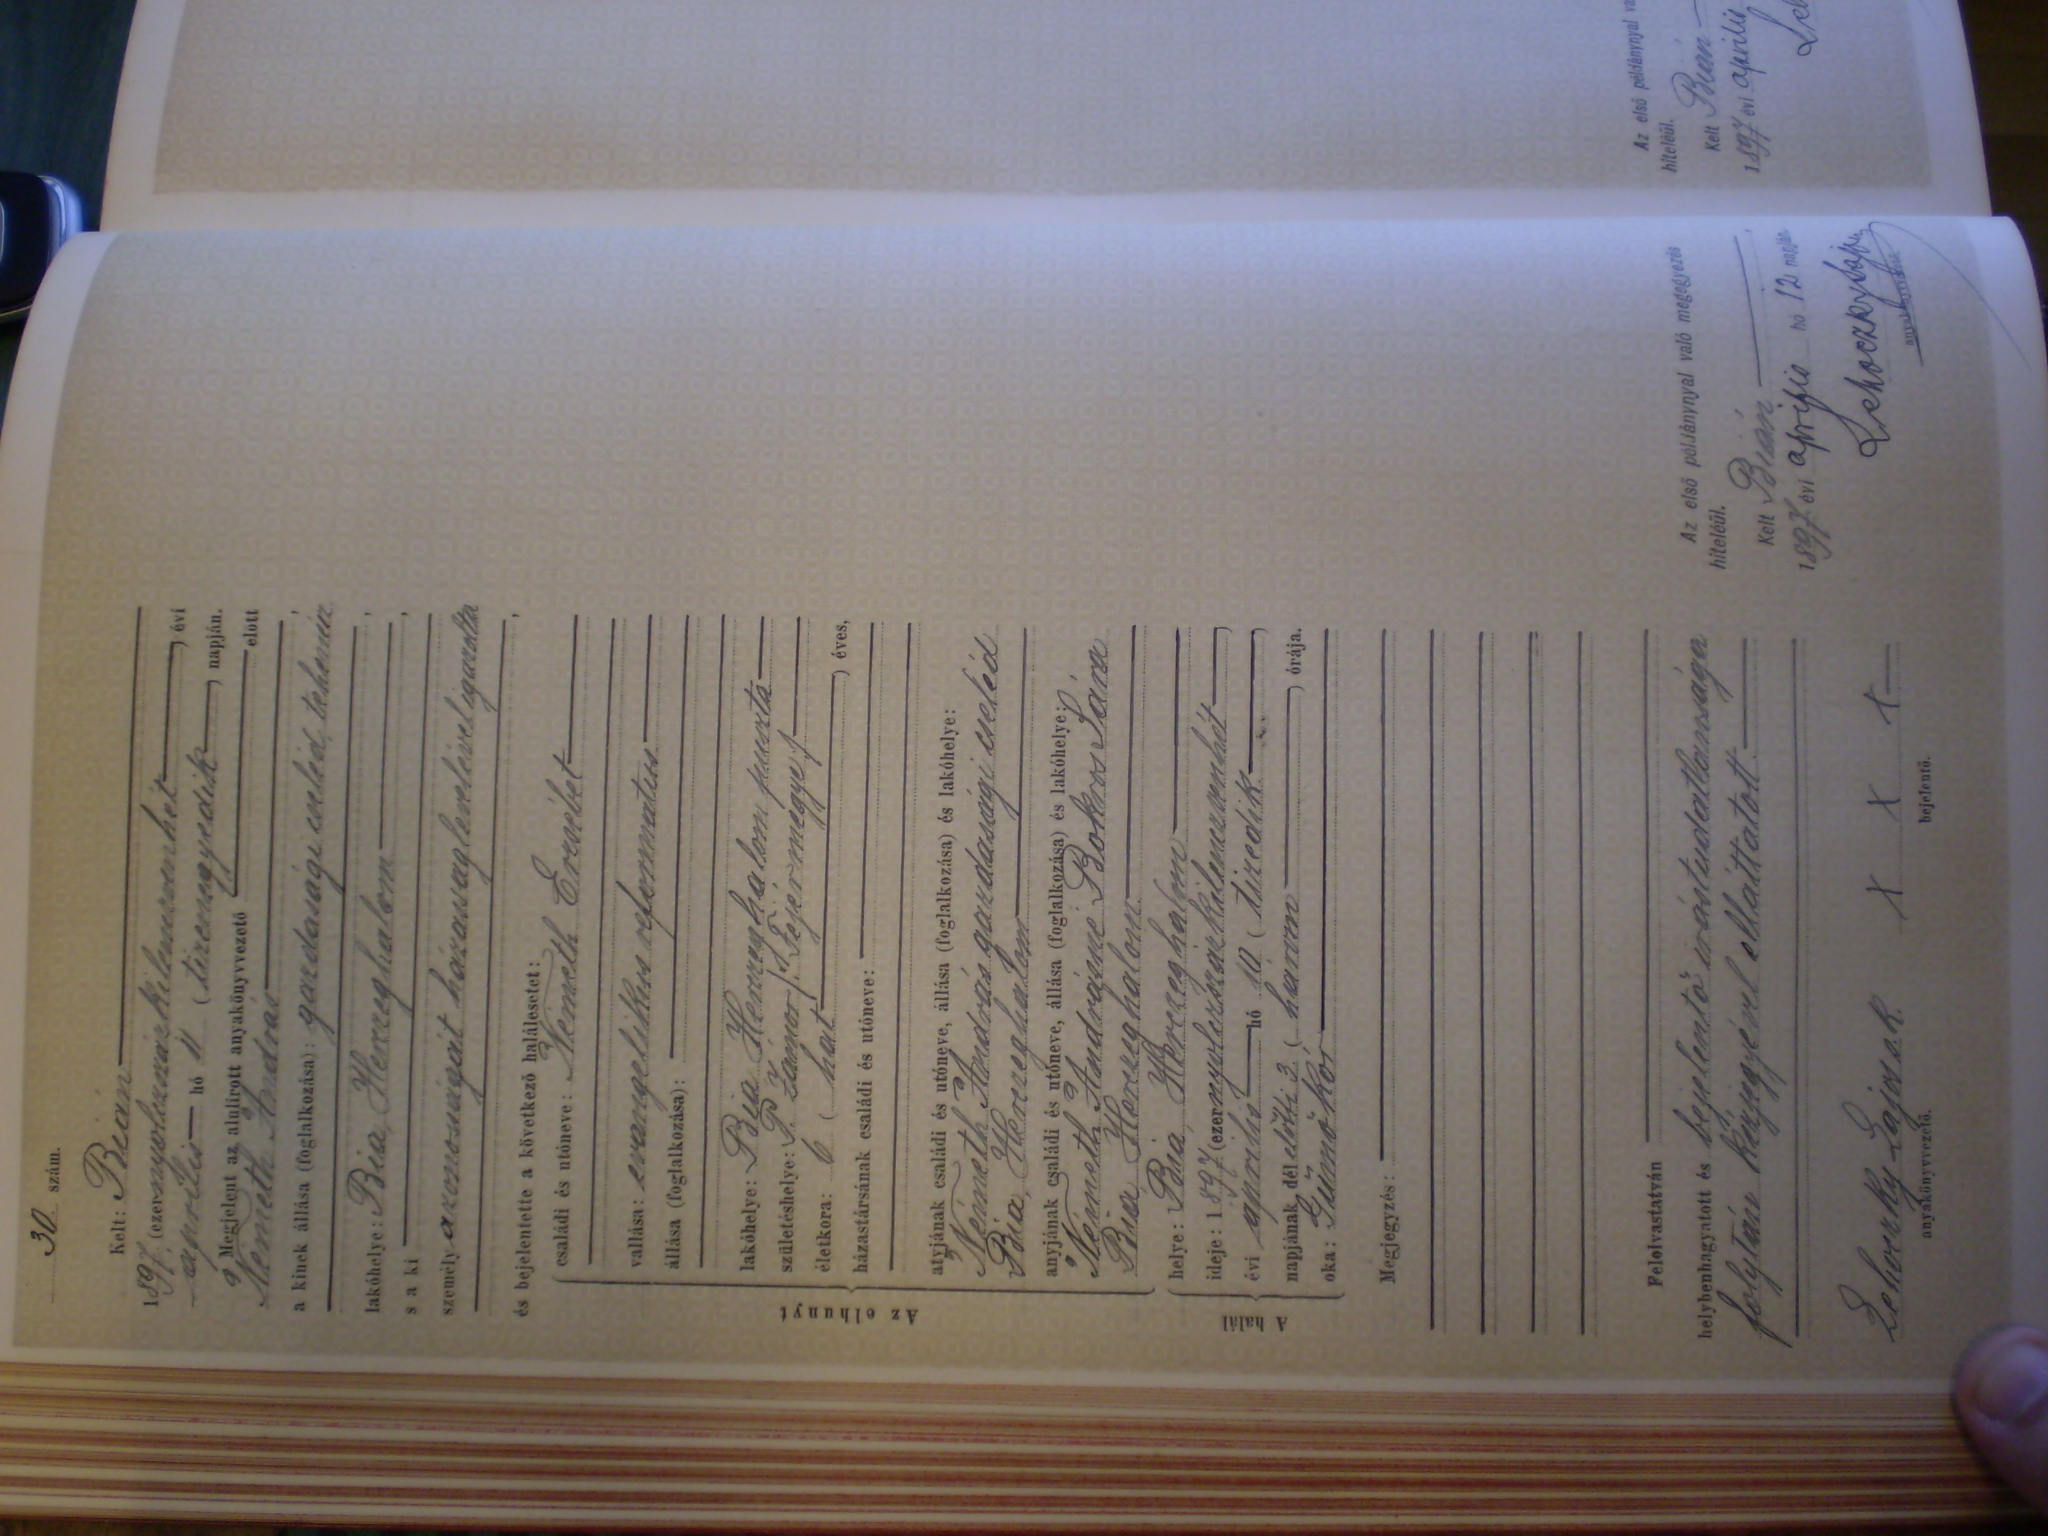 30 szám.
Kelt: Bián
1897. (ezernyolczszázkilenczvenhét), évi
április hó 11 (tizenegyedik), napján.
Megjelent az alulirott anyakönyvvezető előtt
Németh András,
a kinek állása (foglalkozása): gazdasági cseléd, tehenész
lakóhelye: Bia, Herczeghalom,
s a ki,
személyazonosságát házasságlevelével igazolta,
és bejelentette a következő halálesetet:
Az elhunyt
családi és utóneve: Németh Erzsébet
vallása: evangelikus reformatus
állása (foglalkozása):
lakóhelye: Bia Herczeghalom puszta
születéshelye: P. Zámor (Fejérmegye)
életkora: 6 (hat), éves,
házastársának családi és utóneve:
atyjának családi és utóneve, állása (foglalkozása) és lakóhelye:
Németh András gazdasági cseléd
Bia, Herczeghalom
anyjának családi és utóneve, állása (foglalkozása) és lakóhelye:
Németh Andrásné Bokros Sára
Bia, Herczeghalom
A halál
helye: Bia, Herczeghalom
ideje: 1897 (ezernyolczszázkilenczvenhét),
évi április hó 10 (tizedik),
napjának dél előtti 3 (három), órája.
oka: Gümőkór
Megjegyzés:
Felolvastatván
helybenhagyatott és bejelentő irástudatlansága
folytán kézjegyével elláttatott.
Lehoczky Lajos s. k. x x x
anyakönyvvezető. bejelentő.
Az első példánynyal való megegyezés
hiteléül.
Kelt Bián,
1897 évi április hó 12 napján
Lehoczky Lajos
anyakönyvvezető.
Az első példánynyal va
hiteléül.
Kelt Bián
1897 évi április
Leh